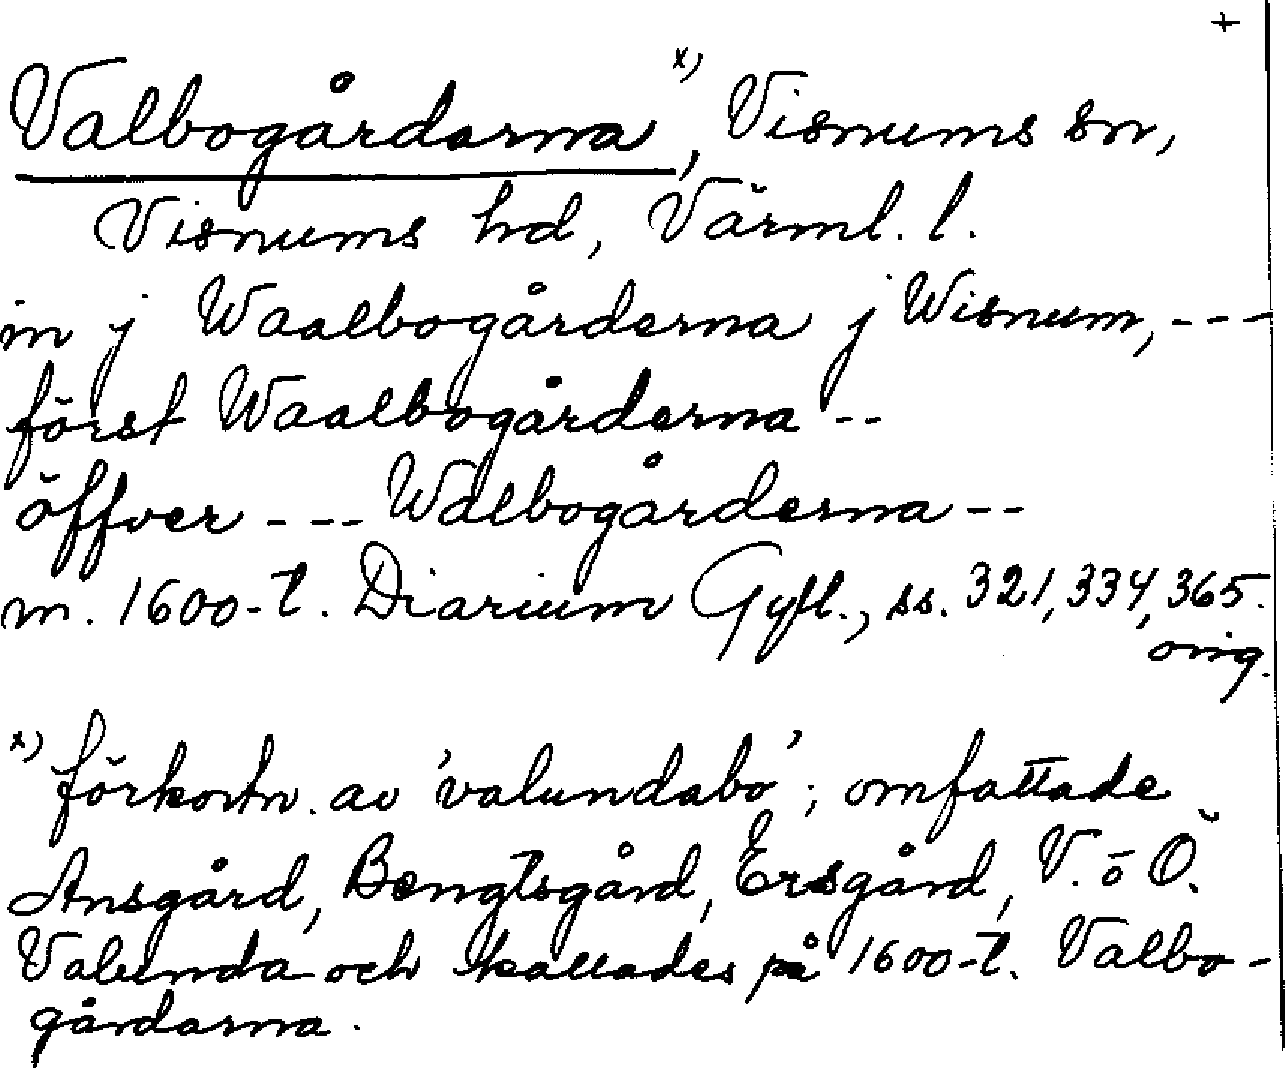 +
Valbogårdarna x), Visnums sn,
Visnums hd, Värml. l.
in j Waalbogårderna j Wisnum, ---
först Waalbogårderna --
öffver --- Walbogårderna --
m. 1600-t. Diarium Gyll., ss. 321, 334, 365.
orig.
x) förkortn. av 'valundabo'; omfattade
Ansgård, Bengtsgård, Ersgård, V. o Ö.
Valunda och kallades på 1600-t. Valbo-
gårdarna.